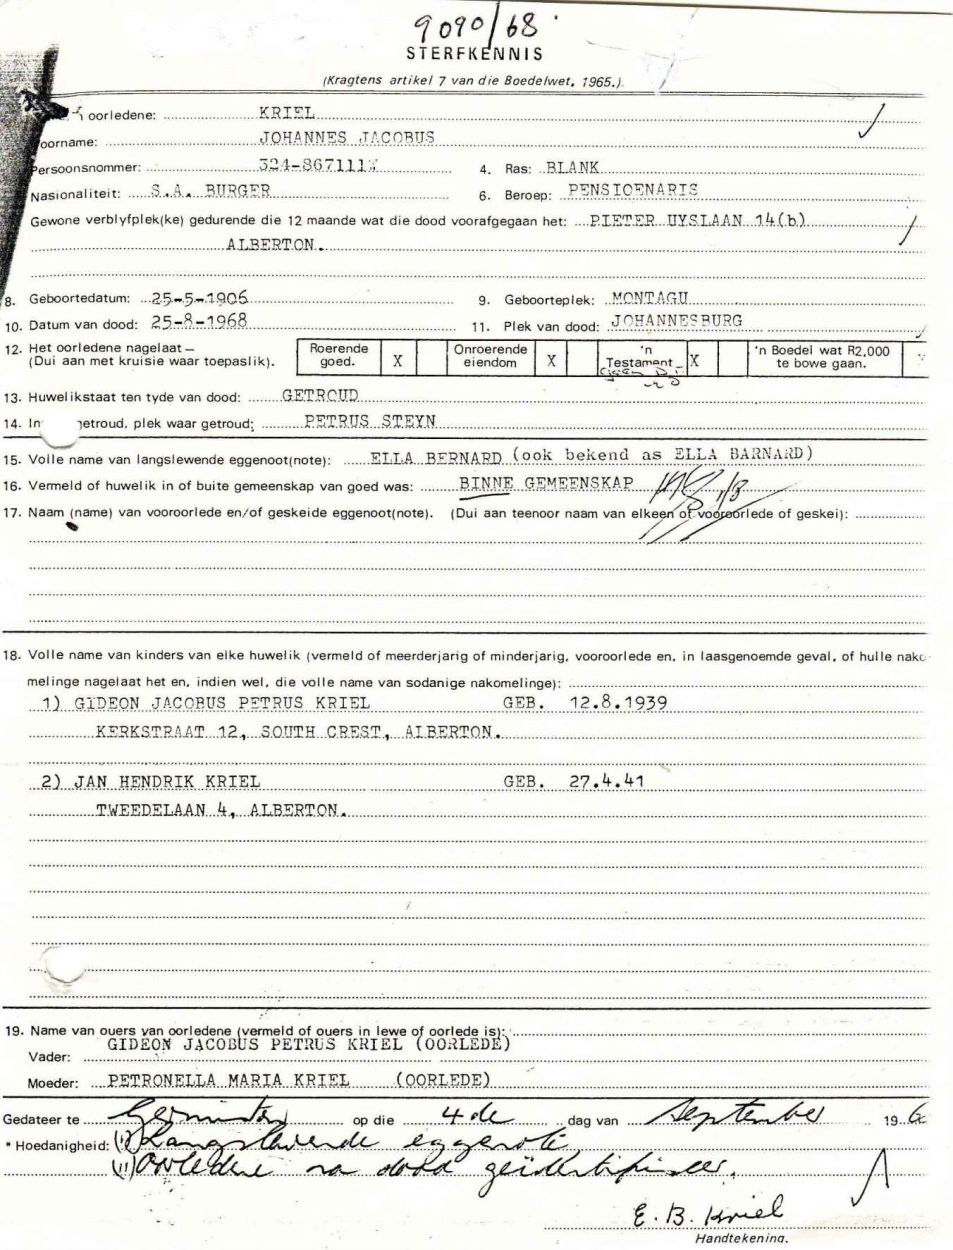 9090/68
STERFKENNIS
(Kragtens artikel 7 van die Boedelwet, 1965.)
oorledene: KRIEL
oorname: JOHANNES JACOBUS
Persoonsnommer: 324-867111W 4. Ras: BLANK
Nasionaliteit: S.A. BURGER 6. Beroep: PENSIOENARIS
Gewone verblyfplek(ke) gedurende die 12 maande wat die dood voorafgegaan het: PIETER UYSLAAN 14(b)
ALBERTON.
8. Geboortedatum: 25-5-1906 9. Geboorteplek: MONTAGU
10. Datum van dood: 25-8-1968 11. Plek van dood: JOHANNESBURG
12. Het oorledene nagelaat— Roerende Onroerende 'n 'n Boedel wat R2,000
(Dui aan met kruisie waar toepaslik). goed. X eiendom X Testament X te bowe gaan.
13. Huwelikstaat ten tyde van dood: GETROUD
14. In etroud, plek waar getroud: PETRUS STEYN
15. Volle name van langslewende eggenoot(note): ELLA BERNARD (ook bekend as ELLA BARNARD)
16. Vermeld of huwelik in of buite gemeenskap van goed was: BINNE GEMEENSKAP
17. Naam (name) van vooroorlede en/of geskeide eggenoot(note). (Dui aan teenoor naam van elkeen of vooroorlede of geskei):
18. Volle name van kinders van elke huwelik (vermeld of meerderjarig of minderjarig, vooroorlede en, in laasgenoemde geval, of hulle nako
melinge nagelaat het en, indien wel, die volle name van sodanige nakomelinge):
1) GIDEON JACOBUS PETRUS KRIEL GEB. 12.8.1939
KERKSTRAAT 12, SOUTH CREST, ALBERTON.
2) JAN HENDRIK KRIEL GEB. 27.4.41
TWEEDELAAN 4, ALBERTON.
19. Name van ouers van oorledene (vermeld of ouers in lewe of oorlede is):
GIDEON JACOBUS PETRUS KRIEL (OORLEDE)
Vader:
Moeder: PETRONELLA MARIA KRIEL (OORLEDE)
Gedateer te Germiston op die 4de dag van September 196
* Hoedanigheid: (i) Langslewende eggenote
(ii) Oorledene na dood geïdentifiseer.
E. B. Kriel
Handtekening.